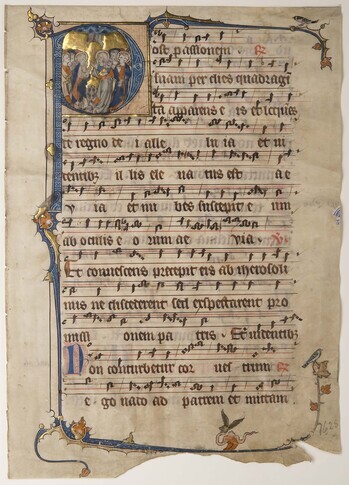 Post passionem
suam per dies quadragi
ta apparens eis et loques
te regno dei alle luia et ui
dentibus illis ele uatus est a e
uia et nubes suscepit e um
ab oculis eorum ae uia
Et conuescens precepit eis ab iherosoli
mis ne discederent sed expectarent pro
missi onem pa tris Et uidentibus
Non conturbetur cor ues trum
ego uado ad patrem et mittam